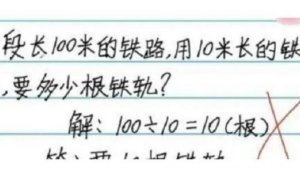 段长100米的铁路,用10米长的铁
,要多少根铁轨?
解: 100÷10=10(根)